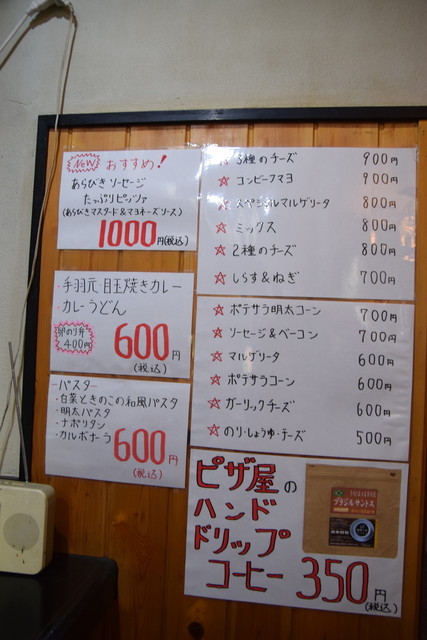 NEW おすすめ!
あらびきソーセージ
たっぷりピッツァ
(あらびきマスタード&マヨネーズソース)
1000円(税込)
・手羽元・目玉焼きカレー
・カレーうどん
400円
600円
(税込)
ーパスター
・白菜ときのこの和風パスタ
・明太パスタ
・ナポリタン
・カルボナーラ
600円
(税込)
☆ 3種のチーズ 900円
☆ コンビーフマヨ 900円
☆ スペシャルマルゲリータ 800円
☆ ミックス 800円
☆ 2種のチーズ 800円
☆ しらす&ねぎ 700円
☆ ポテサラ明太コーン 700円
☆ ソーセージ&ベーコン 700円
☆ マルゲリータ 600円
☆ ポテサラコーン 600円
☆ ガーリックチーズ 600円
☆ のり・しょうゆ・チーズ 500円
ピザ屋の
ハンド
ドリップ
コーヒー 350円
(税込)
ブラジルサントス